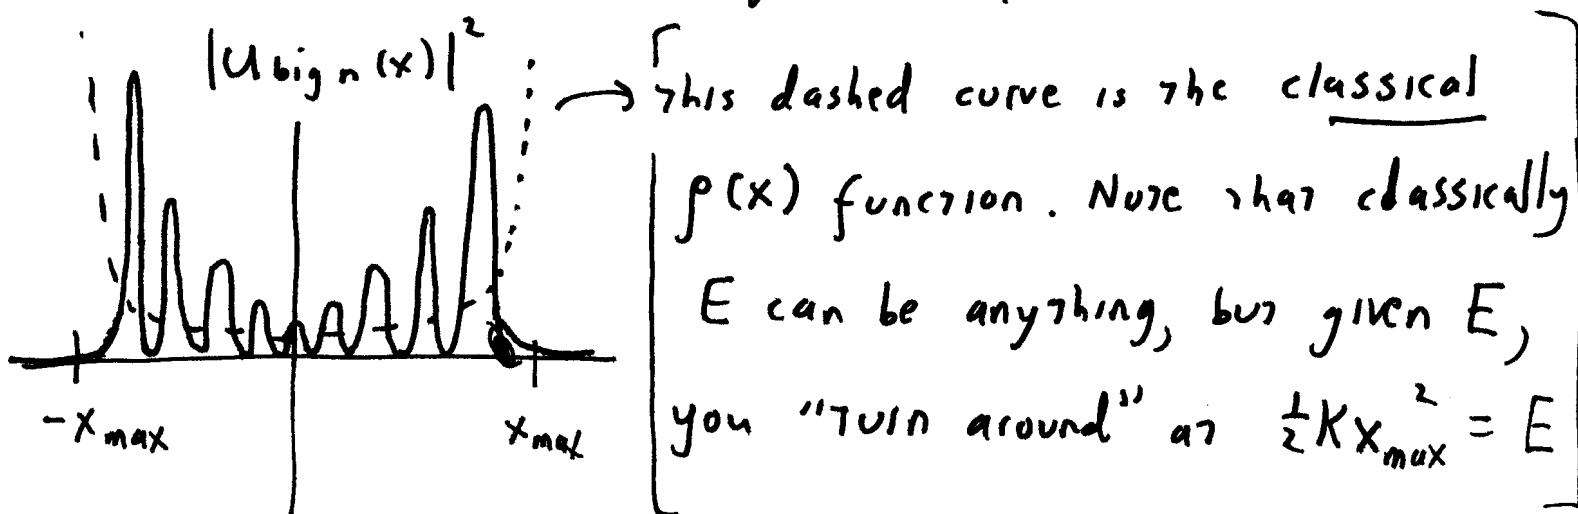 |u_big n (x)|²
This dashed curve is the classical
ρ(x) function. Note that classically
E can be anything, but given E,
you "turn around" at ½Kx_max² = E
-x_max
x_max